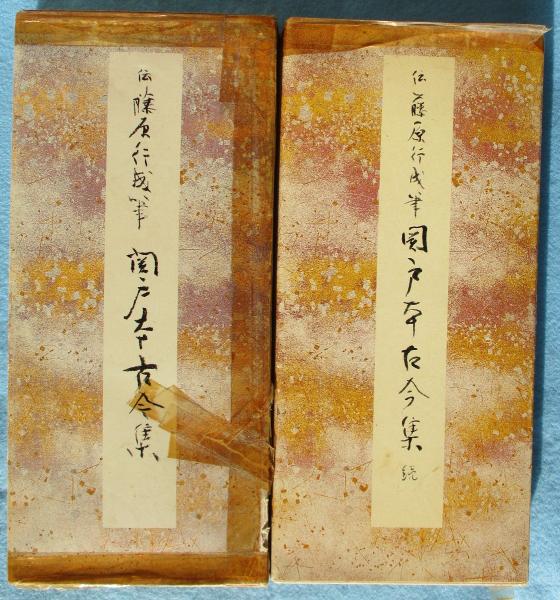 伝藤原行成筆 関戸本古今集
伝藤原行成筆 関戸本古今集 続